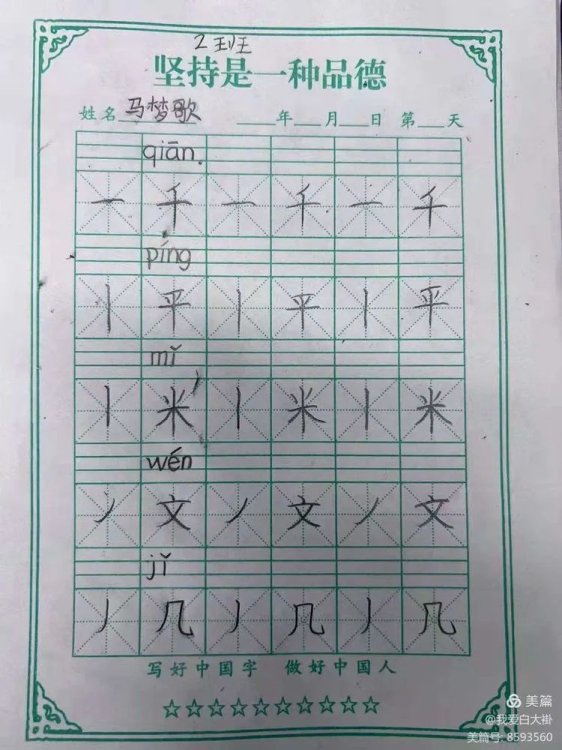 2班
坚持是一种品德
姓名 马梦歌 年 月 日 第 天
qiān.
一 千 一 千 一 千
píng
丨 平 丨 平 丨 平
mǐ
丨 米 丨 米 丨 米
wén
丿 文 丿 文 丿 文
jǐ
丿 几 丿 几 丿 几
写好中国字 做好中国人
☆☆☆☆☆☆☆☆☆☆☆☆
美篇
@我爱白大褂
美篇号: 8593560